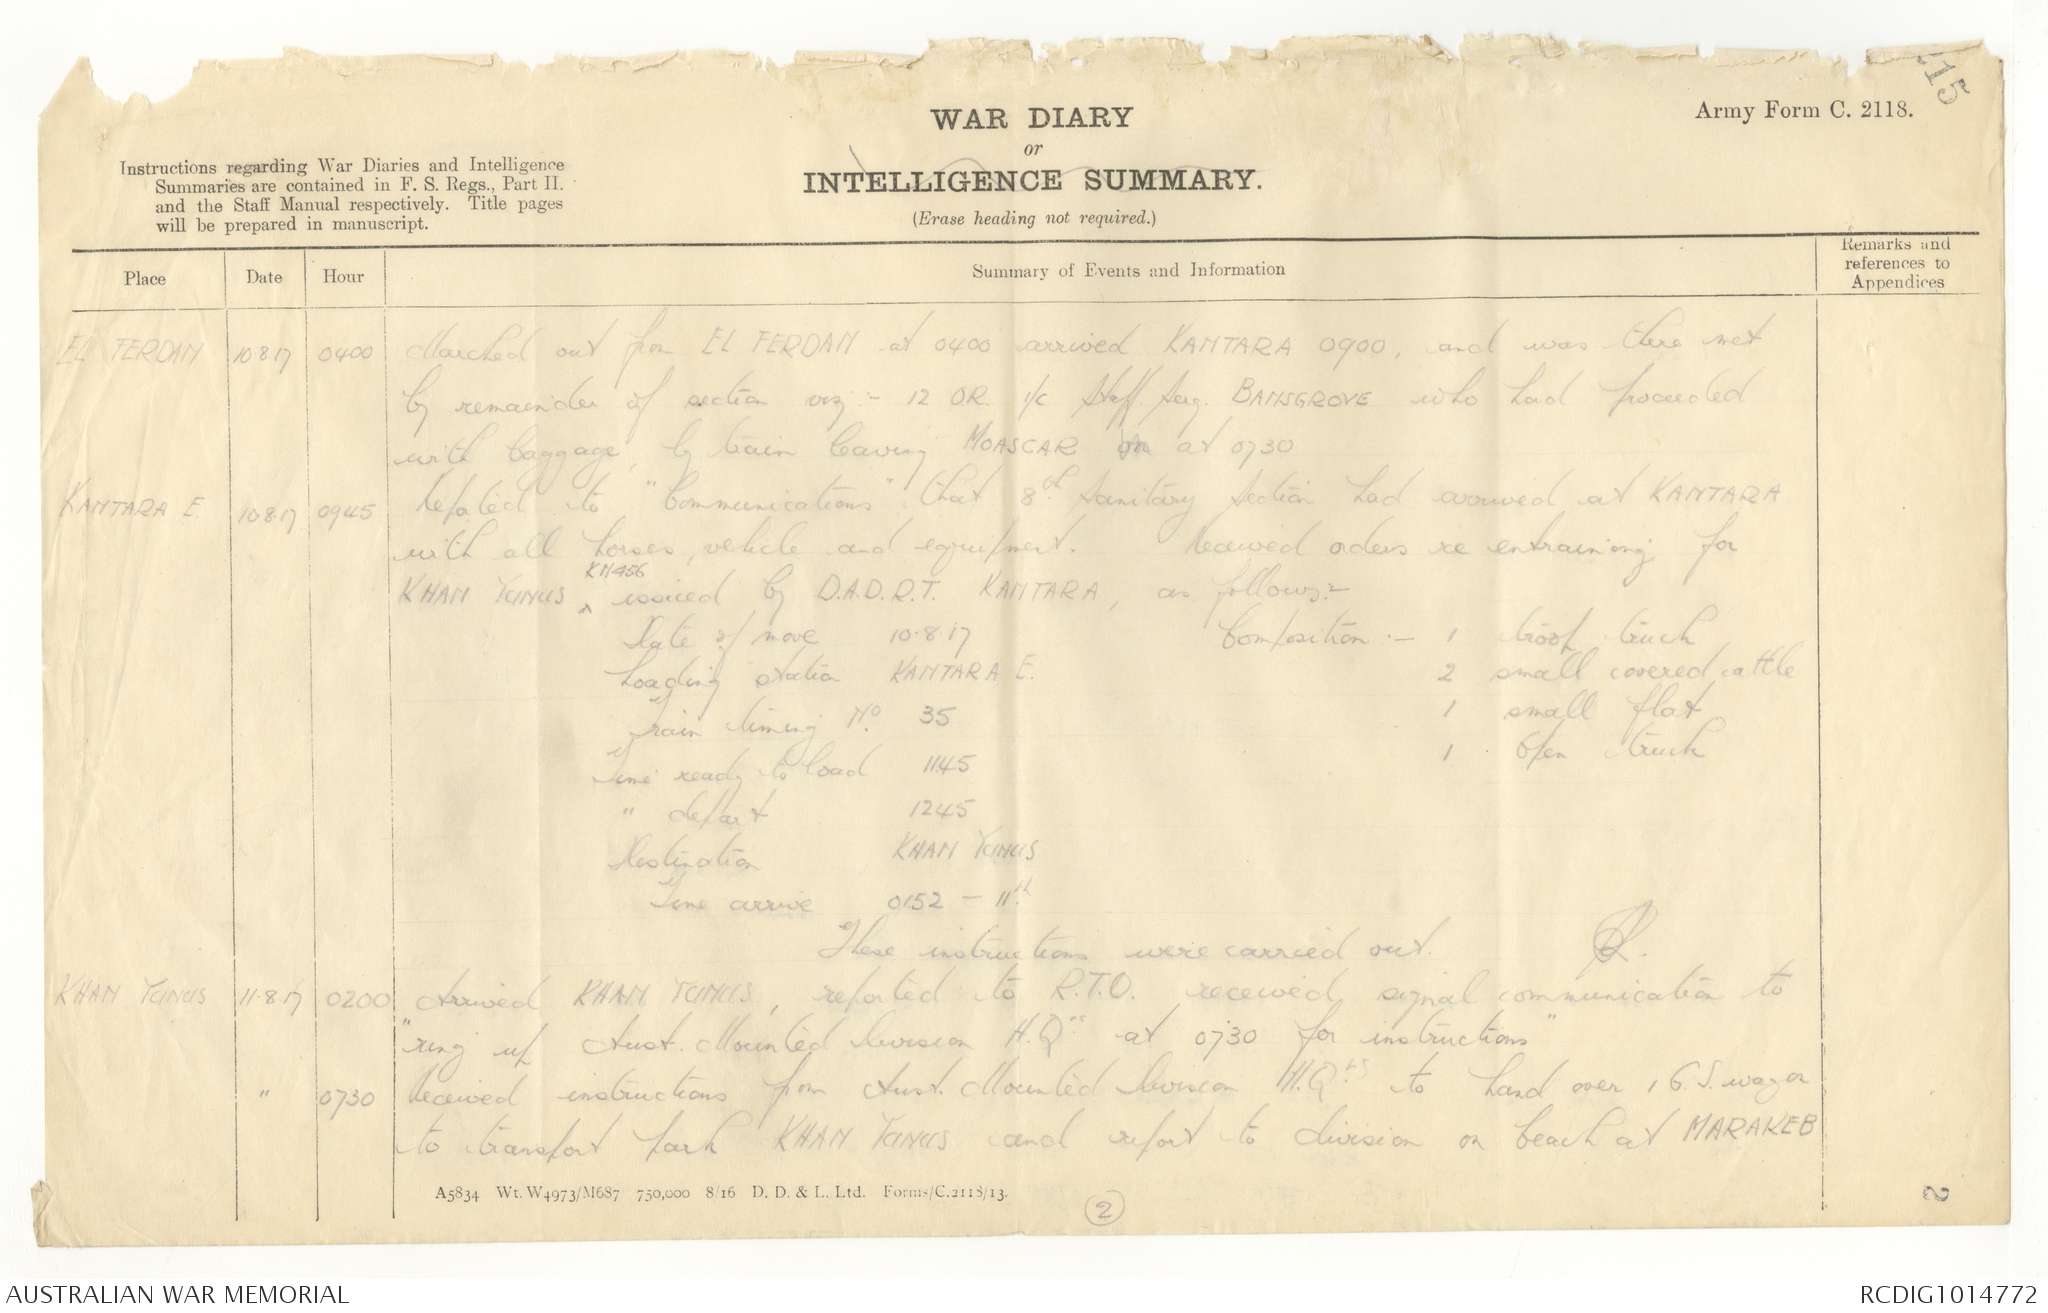 115
Army Form C. 2118.
WAR DIARY
or
INTELLIGENCE SUMMARY.
(Erase heading not required.)
Instructions regarding War Diaries and Intelligence
Summaries are contained in F. S. Regs., Part II.
and the Staff Manual respectively. Title pages
will be prepared in manuscript.
Place Date Hour Summary of Events and Information Remarks and
references to
Appendices
EL FERDAN 10.8.17 0400 Marched out from EL FERDAN at 0400 arrived KANTARA 0900, and was there met
by remainder of section viz :- 12 O.R. i/c Staff. Serg. BANSGROVE who had proceeded
with baggage, by train leaving MOASCAR at 0730
KANTARA E. 10.8.17 0945 Reported to "Communications" that 8th Sanitary Section had arrived at KANTARA
with all horses, vehicle and equipment. Received orders re entraining for
KHAN YUNUS KN456 issued by D.A.D.R.T. KANTARA, as follows:-
Date of move 10.8.17 Composition :- 1 troop truck
Loading station KANTARA E. 2 small covered cattle
Train timing No 35 1 small flat
Time ready to load 1145 1 Open truck
" depart 1245
Destination KHAN YUNUS
Time arrive 0152 - 11th
These instructions were carried out.
KHAN YUNUS 11.8.17 0200 Arrived KHAN YUNUS, reported to R.T.O. received signal communication to
"ring up Aust. Mounted Division H.Qrs at 0730 for instructions"
" 0730 Received instructions from Aust. Mounted Division H.Qrs to hand over 1 G.S. wagon
to transport park KHAN YUNUS and report to division on beach at MARAKEB
A5834 Wt. W4973/M687 750,000 8/16 D. D. & L. Ltd. Forms/C.2118/13.
2
2
AUSTRALIAN WAR MEMORIAL
RCDIG1014772